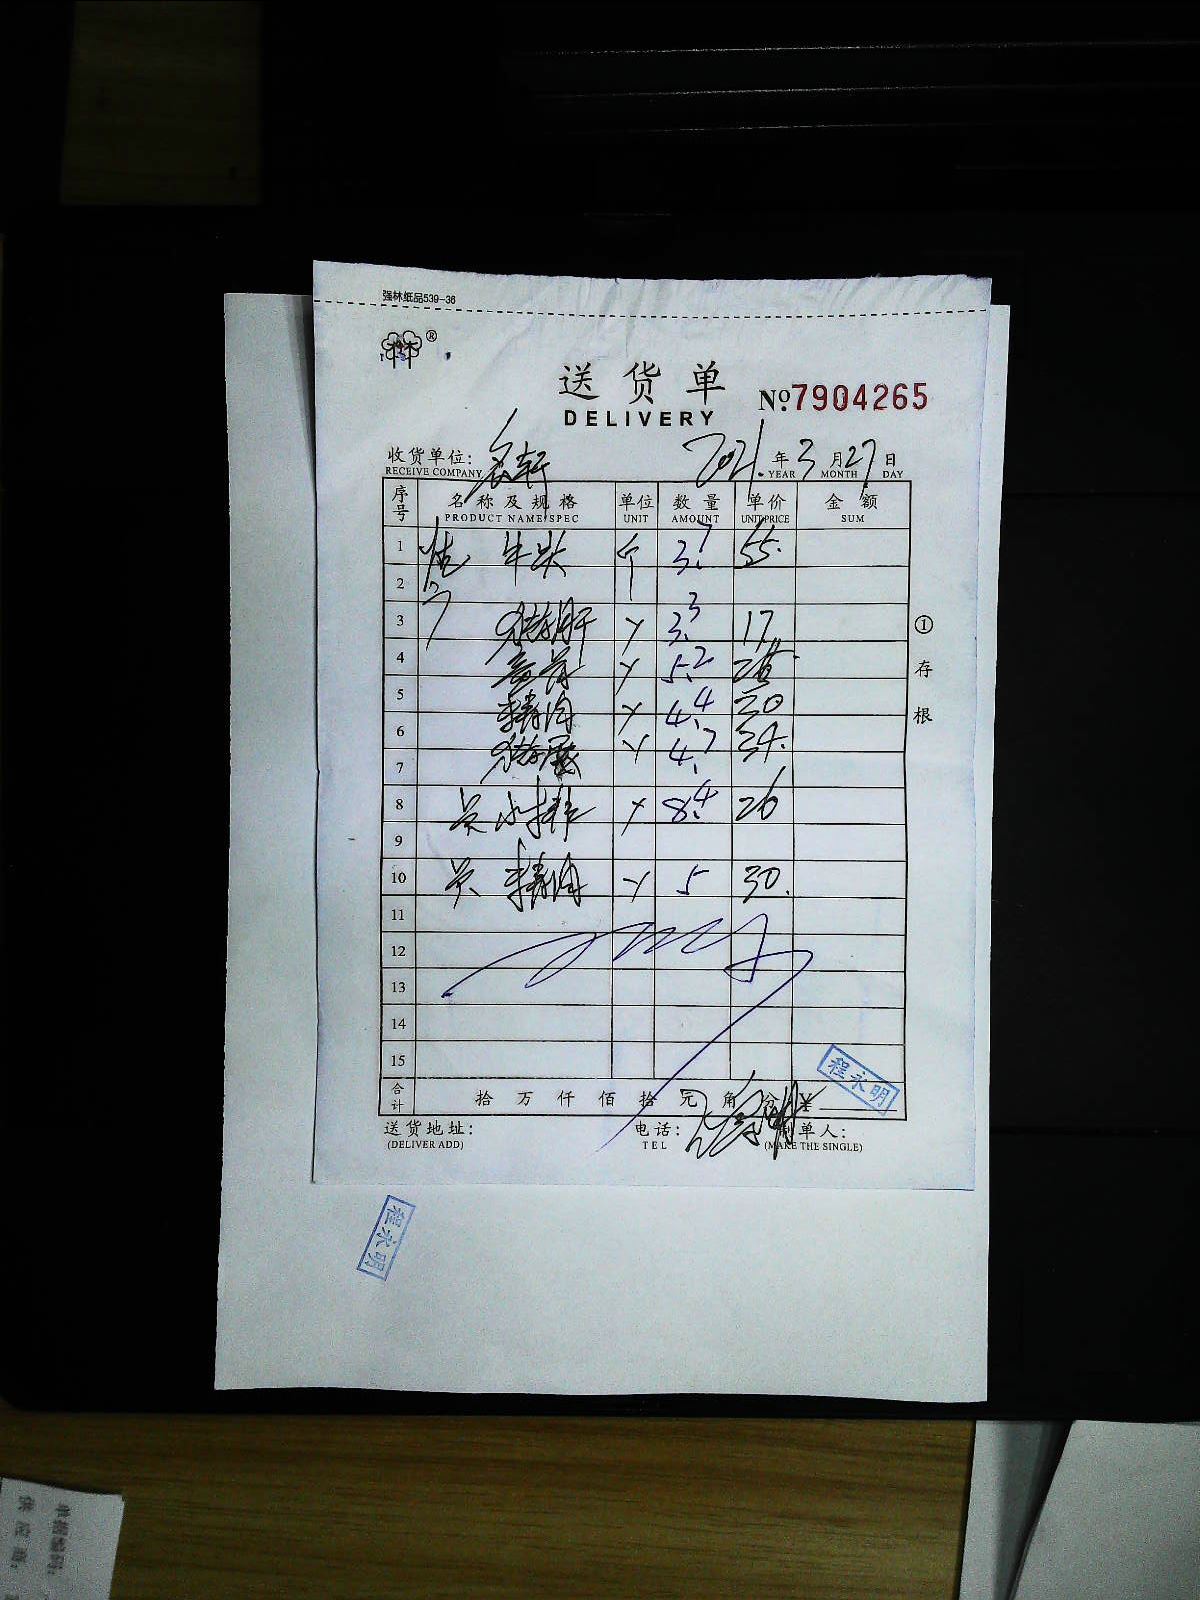 强林纸品539-36
林®
送货单
DELIVERY
№7904265
收货单位: 轩 2021年3月27日
RECEIVE COMPANY YEAR MONTH DAY
序号 名称及规格 单位 数量 单价 金额
PRODUCT NAME/SPEC UNIT AMOUNT UNIT PRICE SUM
1 牛 3.7 55.
2
3 猪肝 3.3 17
4 5.2
5 精肉 4.4 30
6 猪展 4.7 34.
7
8 小排 8.4 26
9
10 精肉 5 30.
11
12
13
14
15
合计 拾万仟佰拾元角分¥
程永明
送货地址: 电话: 制单人:
(DELIVER ADD) TEL (MAKE THE SINGLE)
①存根
程永明
单据编码:
供应商: